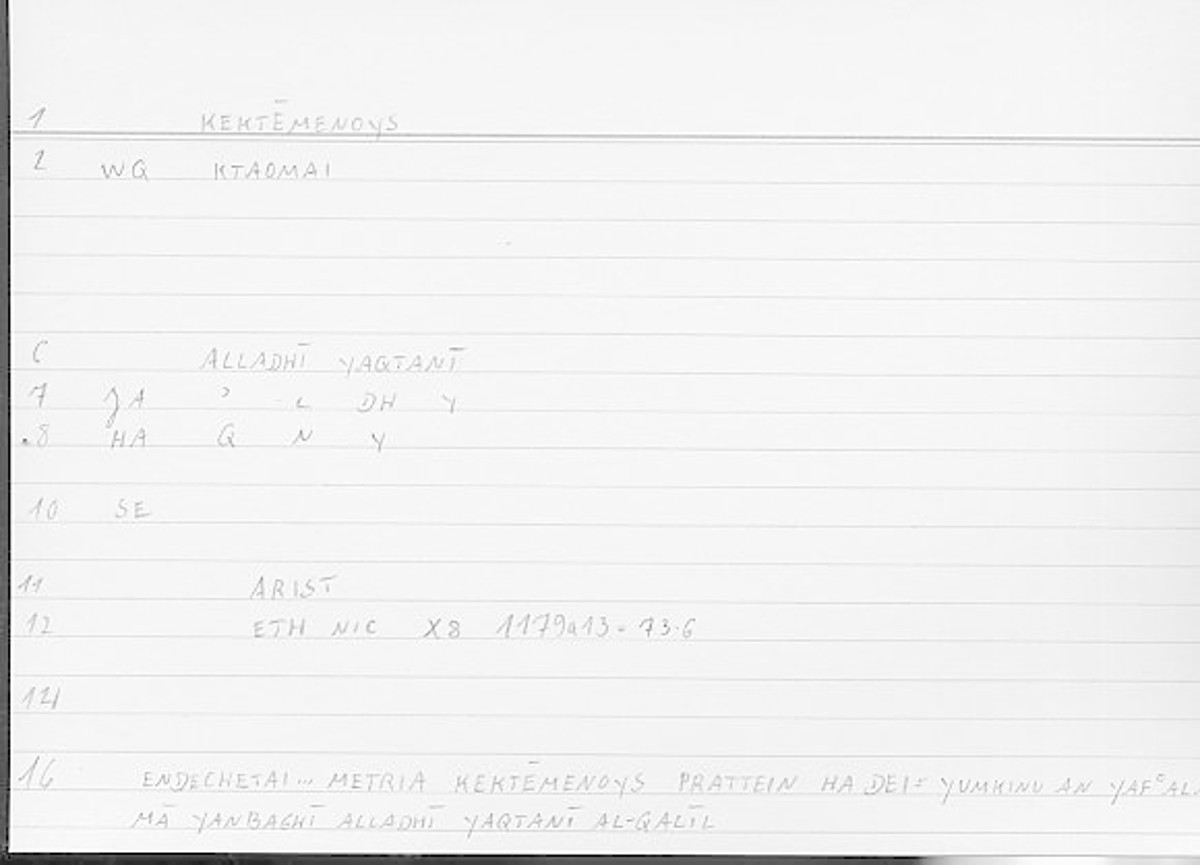 1 KEKTĒMENOYS
2 WQ KTAOMAI
6 ALLADHĪ YAQTANĪ
7 JA ʾ L DH Y
.8 HA Q N Y
10 SE
11 ARIST
12 ETH NIC X8 1179a13 = 73.6
14
16 ENDECHETAI... METRIA KEKTĒMENOYS PRATTEIN HA DEI = YUMKINU AN YAFʿAL.
MĀ YANBAGHĪ ALLADHĪ YAQTANĪ AL-QALĪL